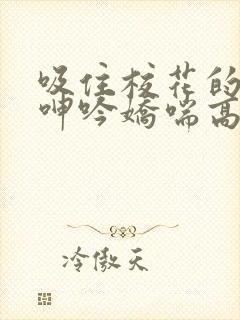 吸住核花的
呻吟娇喘高
冷傲天